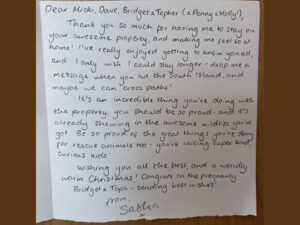 Dear Micki, Dave, Bridget & Topher (& Penny & Holly!),
Thank you so much for having me to stay on
your awesome property, and making me feel so at
home! I've really enjoyed getting to know you all,
and I only wish I could stay longer - drop me a
message when you hit the South Island, and
maybe we can cross paths!
It's an incredible thing you're doing with
the property, you should be so proud - and it's
already showing in the awesome wildlife you've
got. Be so proud of the great things you're doing
for rescue animals too - you're raising super kind,
curious kids
Wishing you all the best, and a weirdly
warm Christmas! Congrats on the pregnancy
Bridget & - sending best wishes!
from,
Sasha